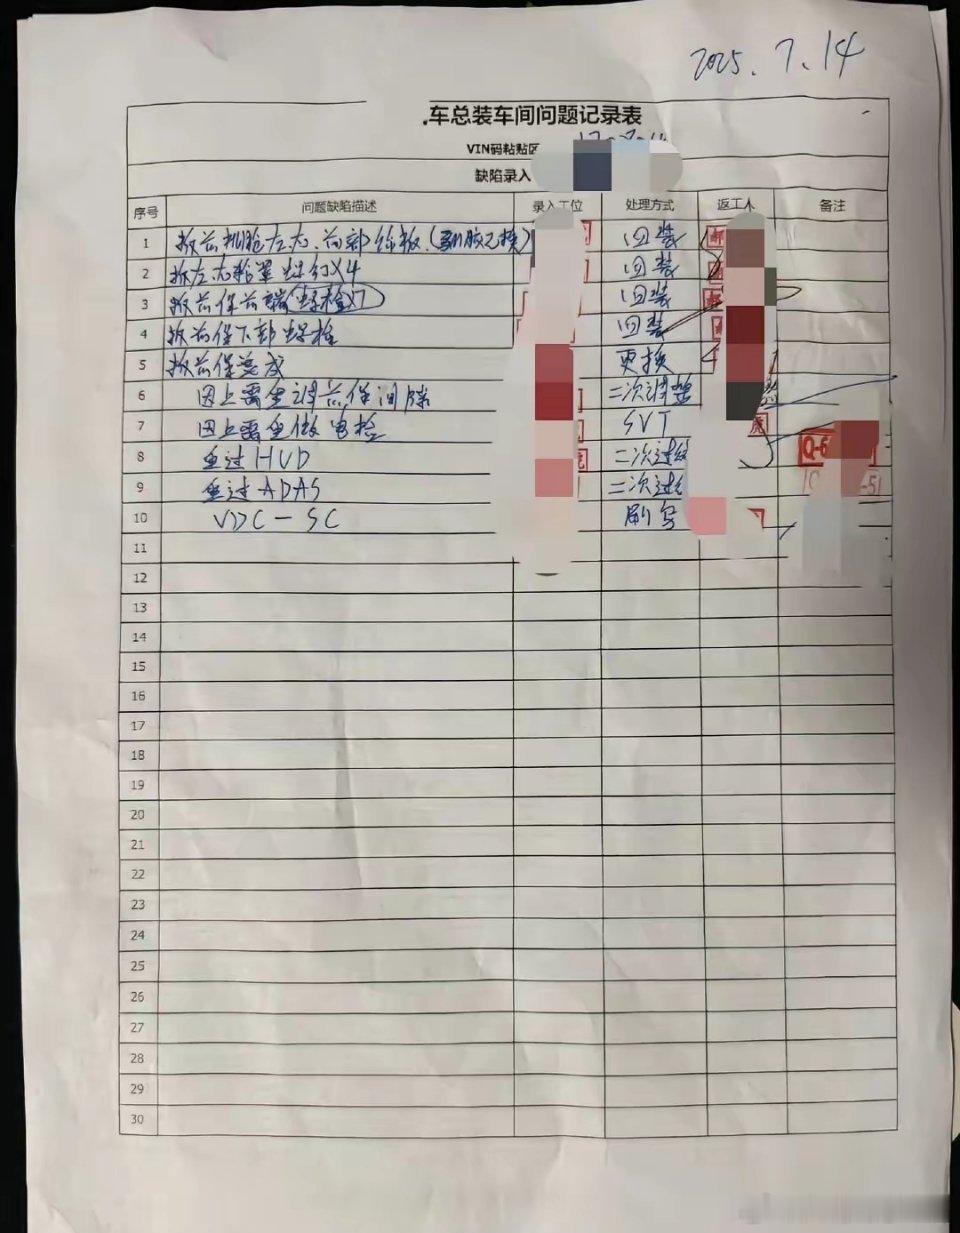 2025.7.14
车总装车间问题记录表
VIN码粘贴区
缺陷录入
序号 问题缺陷描述 录入工位 处理方式 返工人 备注
1 拆前机舱左右、前部饰板 回装
2 拆左右轮罩螺钉X4 回装
3 拆前保前端(螺栓X7) 回装
4 拆前保下部螺栓 回装
5 拆前保总成 更换
6 因上需重调前保间隙 二次调整
7 因上需重做电检 SVT
8 重过HUD 二次过线
9 重过ADAS 二次过
10 VDC-SC 刷写
11
12
13
14
15
16
17
18
19
20
21
22
23
24
25
26
27
28
29
30